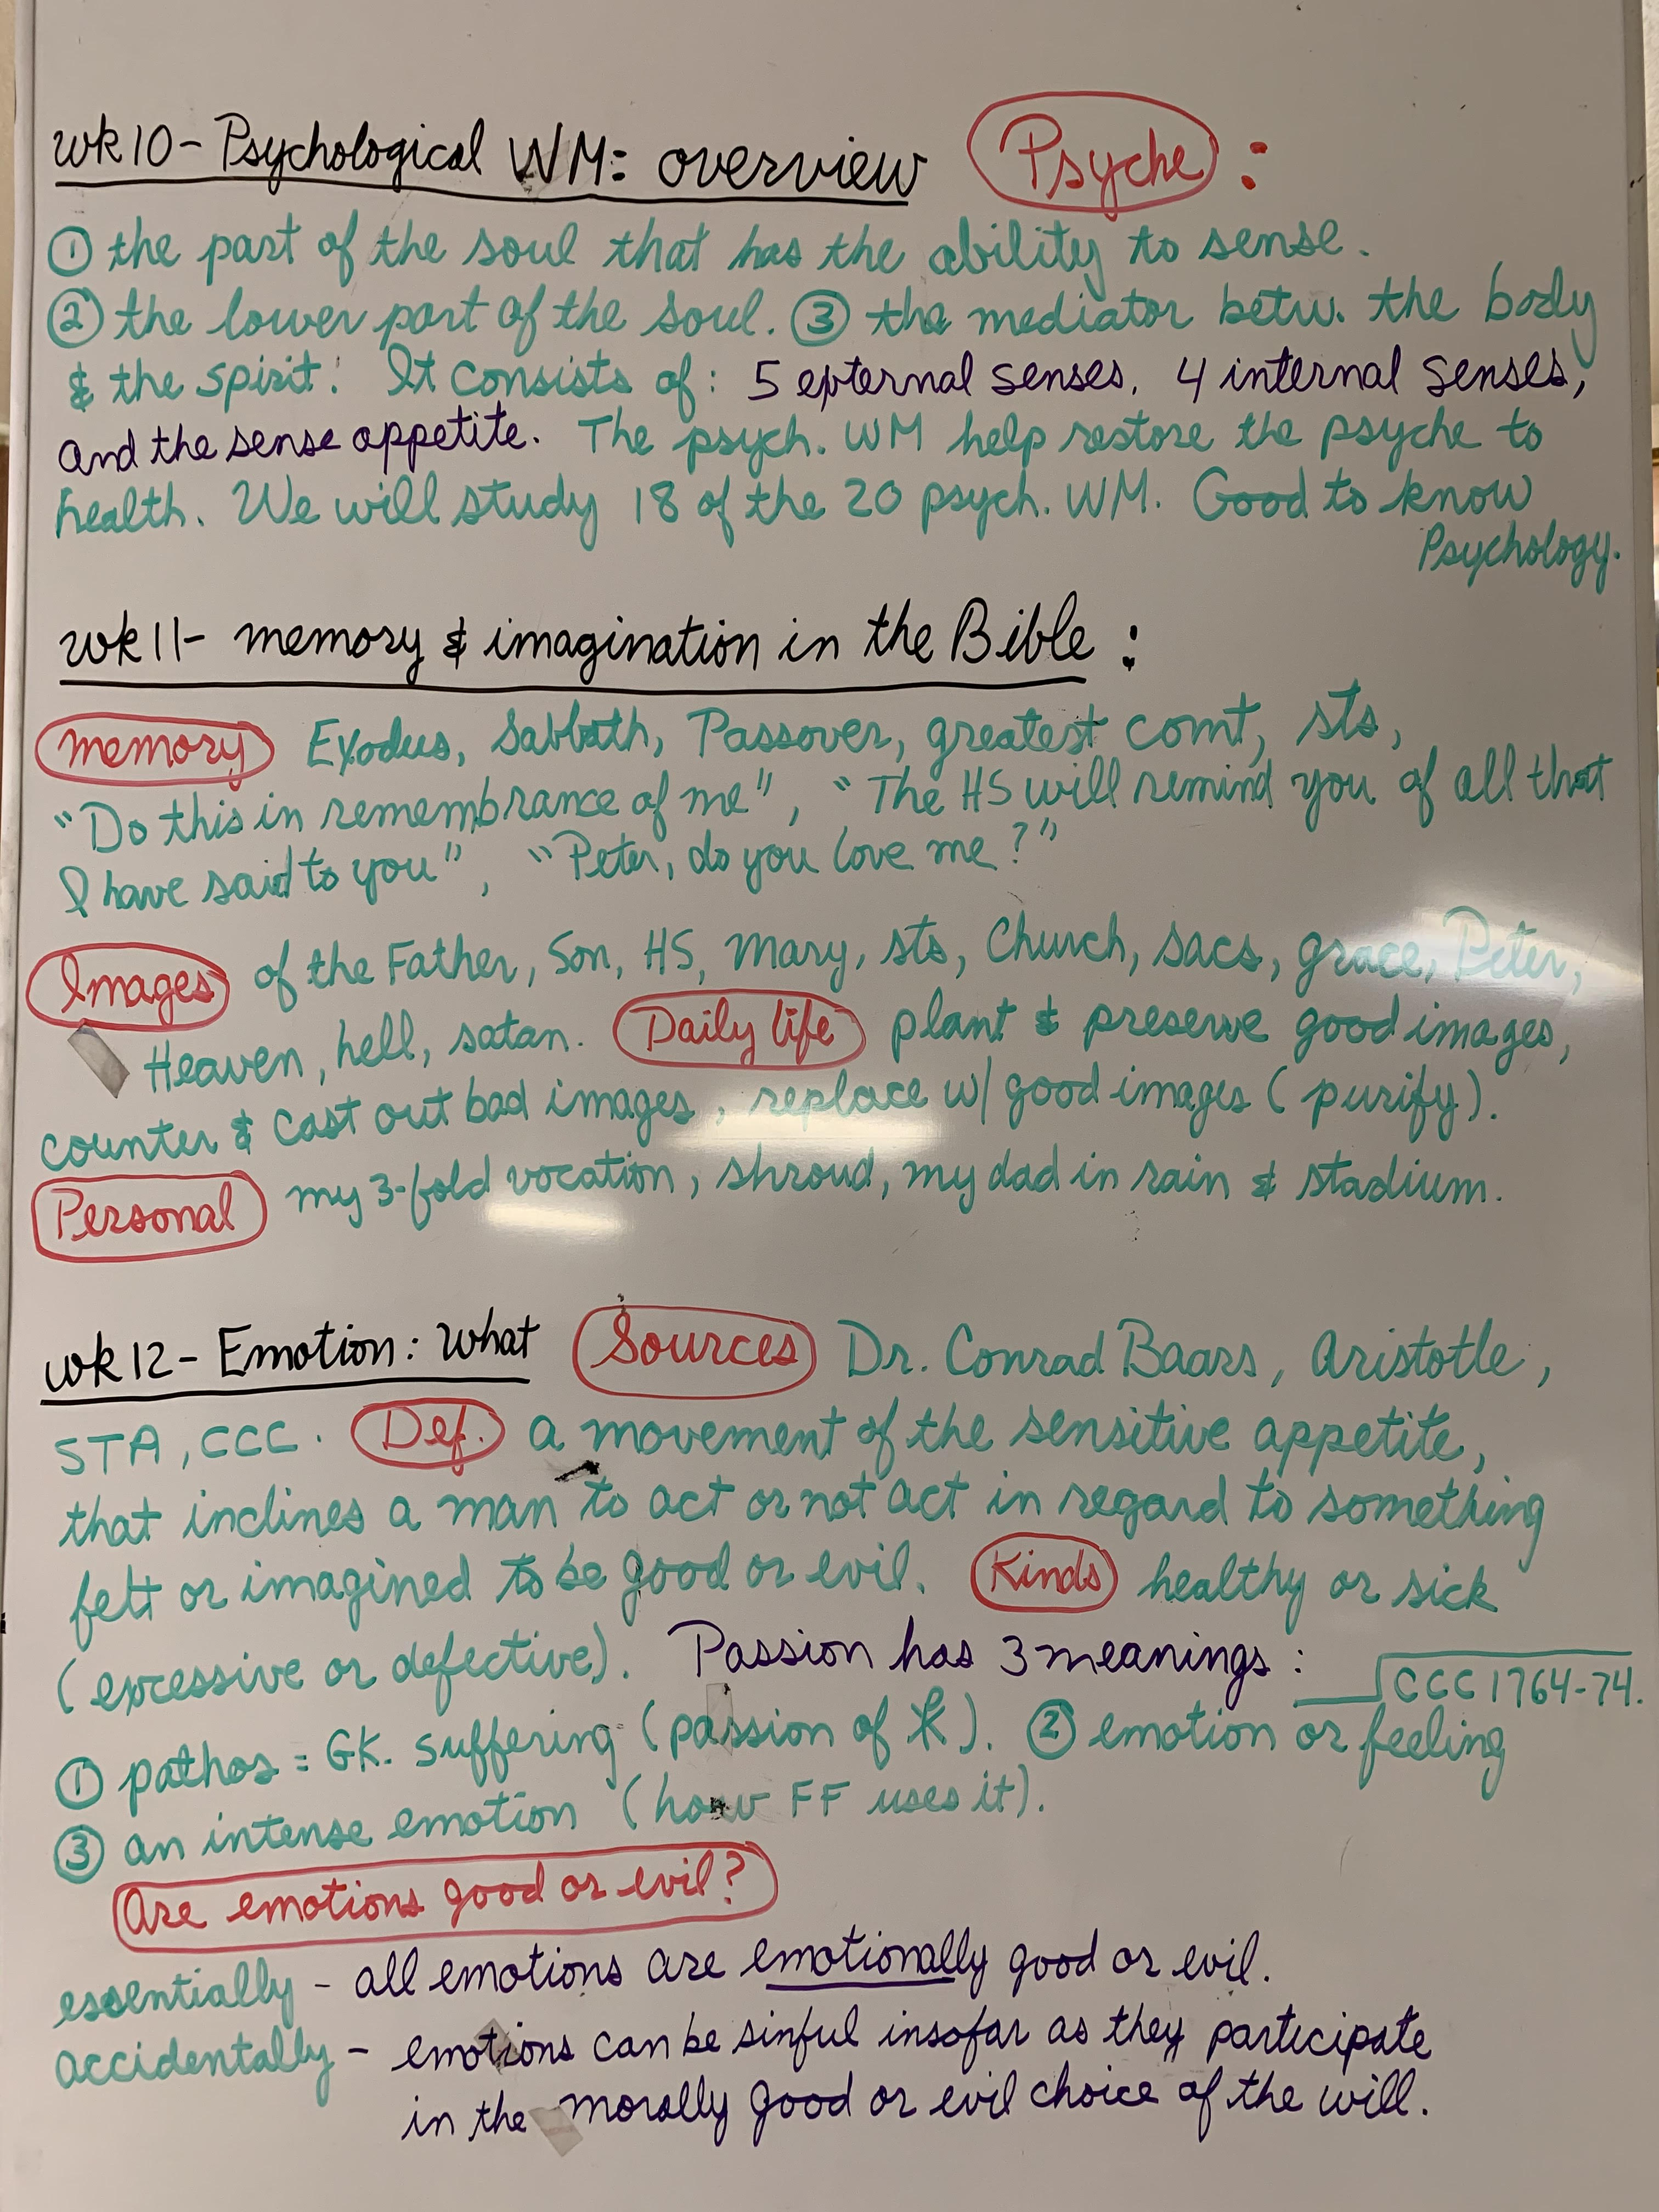 wk 10 - Psychological WM: overview Psyche :
① the part of the soul that has the ability to sense.
② the lower part of the soul. ③ the mediator betw. the body
& the spirit. It consists of: 5 external senses, 4 internal senses,
and the sense appetite. The psych. WM help restore the psyche to
health. We will study 18 of the 20 psych. WM. Good to know
Psychology.
wk 11- memory & imagination in the Bible :
memory Exodus, Sabbath, Passover, greatest comt, sts,
"Do this in remembrance of me", "The HS will remind you of all that
I have said to you", "Peter, do you love me?"
Images of the Father, Son, HS, Mary, sts, Church, sacs, grace, Peter,
Heaven, hell, satan. Daily life plant & preserve good images,
counter & cast out bad images, replace w/ good images (purify).
Personal my 3-fold vocation, shroud, my dad in rain & stadium.
wk 12 - Emotion: What Sources Dr. Conrad Baars, Aristotle,
STA, CCC. Def. a movement of the sensitive appetite,
that inclines a man to act or not act in regard to something
felt or imagined to be good or evil. Kinds healthy or sick
(excessive or defective). Passion has 3 meanings: CCC 1764-74.
① pathos = GK. suffering (passion of ). ② emotion or feeling
③ an intense emotion (how FF uses it).
Are emotions good or evil?
essentially - all emotions are emotionally good or evil.
accidentally - emotions can be sinful insofar as they participate
in the morally good or evil choice of the will.